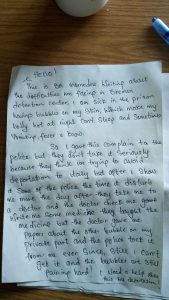 Hello!
This is Ex Mamadou Writing about
the difficulties am facing in Bremen
detention center. I am sick in the prison
having bubble on my skin, which make my
body hot at night cant sleep and sometimes
Vomiting, fever &
So I gave this complain to the
police but they don't take it seriously
because they think am trying to avoid
deportation to Italy but after I show
it some of the police the time it disturb
me much the day after they take me to
a doctor and the doctor check me gave
Write me some medicine they bought the
medicine but the doctor gave me
paper about the other bubble on my
private part and the police took it
from me ever since, after I can't
get it and the bubbles are still
paining hard! I need a help